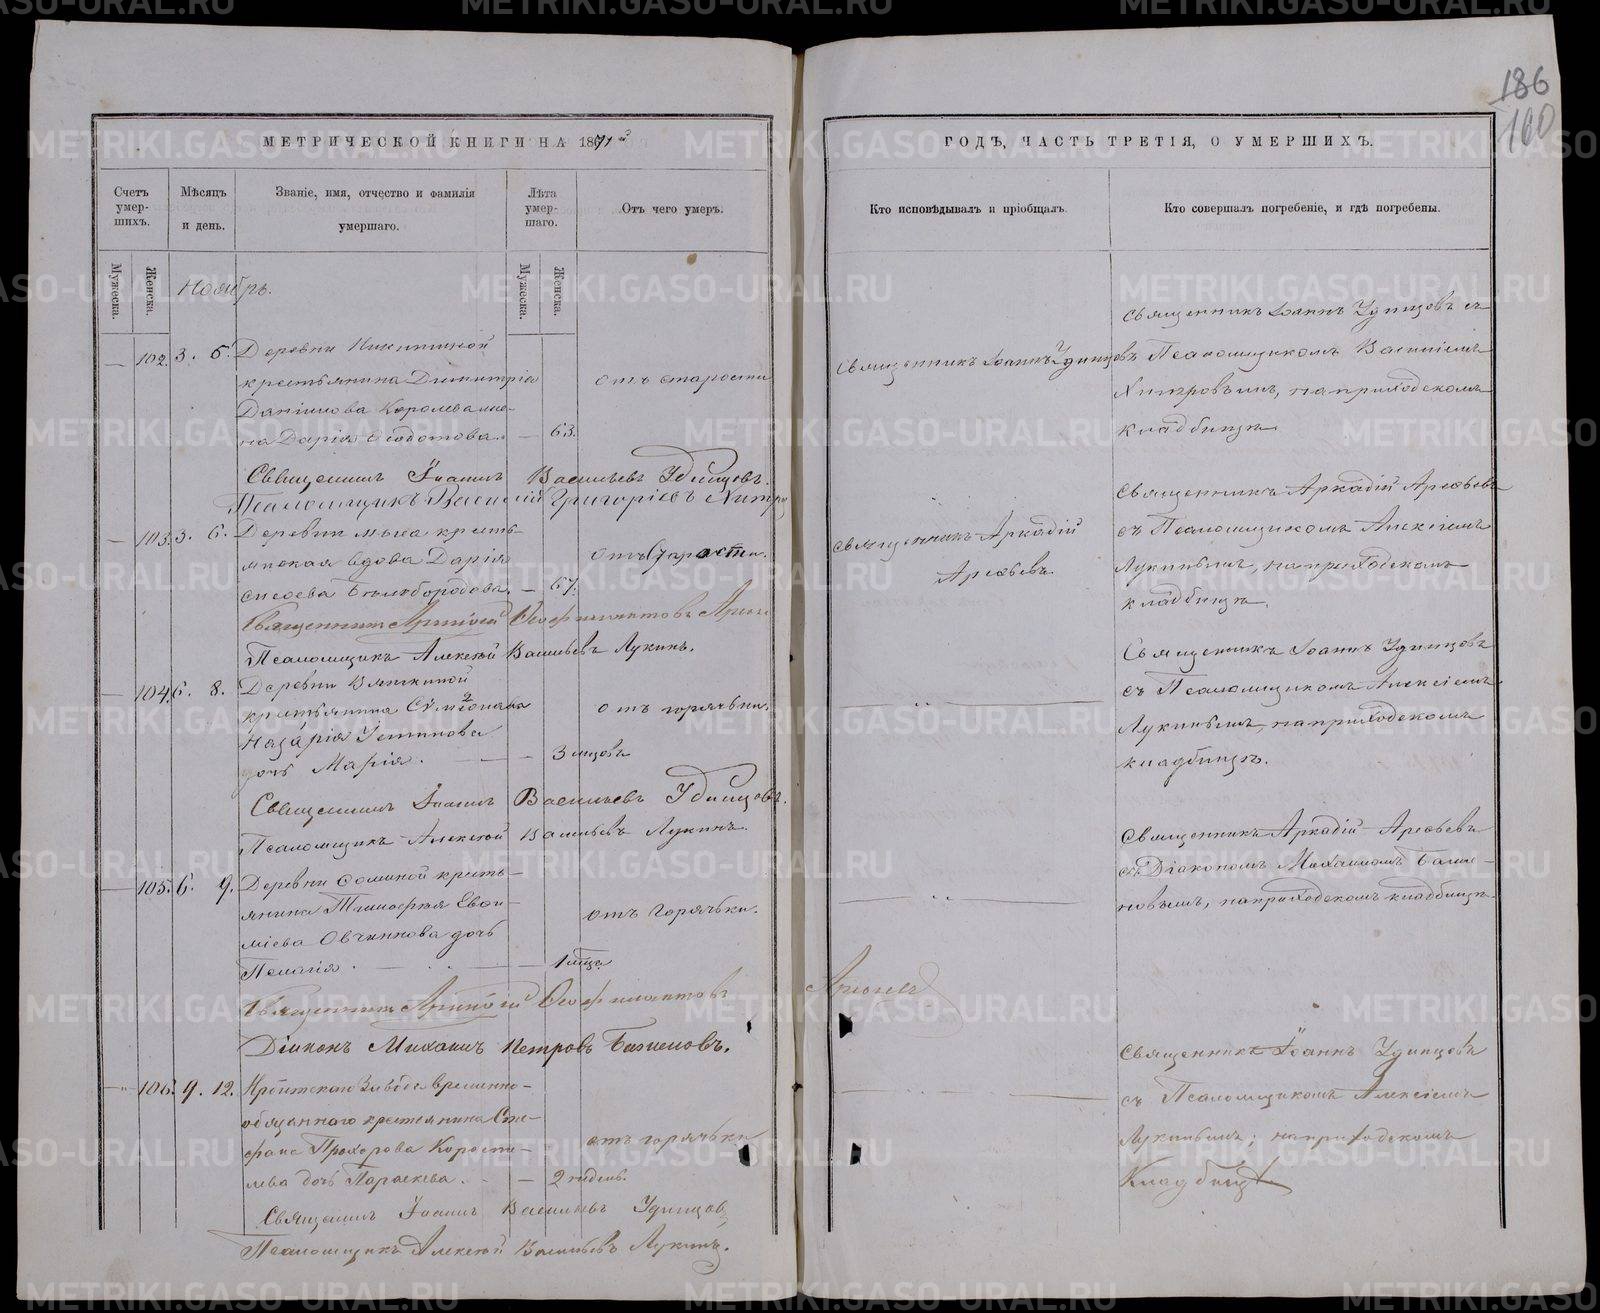 186
160
МЕТРИЧЕСКОЙ КНИГИ НА 1871й
Счетъ умер-шихъ.
Мѣсяцъ и день.
Званіе, имя, отчество и фамилія умершаго.
Лѣта умер-шаго.
Отъ чего умеръ.
Мужеска.
Женска.
Мужеска.
Женска.
Ноябрь.
102. 3. 5. Деревни Никитиной
крестьянина Димитрія
Даніилова Королева же-
на Дарія Ѳедотова. — 63.
отъ старости
Священникъ Іоаннъ Васильевъ Удинцовъ.
Псаломщикъ Василій Григорьевъ Хитро
103. 3. 6. Деревни Мыса кресть-
янская вдова Дарія
Сысоева Бѣлобородова. — 67.
отъ старости.
Священникъ Аркадій Ѳеофилактовъ
Псаломщикъ Алексѣй Васильевъ Лукинъ.
104. 6. 8. Деревни Вяткиной
крестьянина Симеонова
Назарія Устинова
дочь Марія. — 3 мѣсцовъ
отъ горячки.
Священникъ Іоаннъ Васильевъ Удинцовъ.
Псаломщикъ Алексѣй Васильевъ Лукинъ.
105. 6. 9. Деревни Соминой кресть-
янина Тимоѳея Евѳи-
міева Овчинникова дочь
Пелагія. — 1 мѣсца
отъ горячки.
Священникъ Аркадій Ѳеофилактовъ
Діаконъ Михаилъ Петровъ Баженовъ.
106. 9. 12. Ирбитскаго Завода временно-
обязаннаго крестьянина Сте-
фана Прохорова Корости-
лева дочь Параскева. — 2 недѣль.
отъ горячки
Священникъ Іоаннъ Васильевъ Удинцовъ
Псаломщикъ Алексѣй Васильевъ Лукинъ.
ГОДЪ, ЧАСТЬ ТРЕТІЯ, О УМЕРШИХЪ.
Кто исповѣдывалъ и пріобщалъ.
Кто совершалъ погребеніе, и гдѣ погребены.
Священникъ Іоаннъ Удинцовъ
Священникъ Іоаннъ Удинцовъ съ
Псаломщикомъ Василіемъ
Хитровымъ, на приходскомъ
кладбищѣ.
Священникъ Аркадій
Арефьевъ.
Священникъ Аркадій Арефьевъ
съ Псаломщикомъ Алексіемъ
Лукинымъ, на приходскомъ
кладбищѣ.
Священникъ Іоаннъ Удинцовъ
съ Псаломщикомъ Алексіемъ
Лукинымъ, на приходскомъ
кладбищѣ.
Священникъ Аркадій Арефьевъ
съ Діакономъ Михаиломъ Баже-
новымъ, на приходскомъ кладбищѣ.
Арефьевъ
Священникъ Іоаннъ Удинцовъ
съ Псаломщикомъ Алексіемъ
Лукинымъ, на приходскомъ
Кладбищѣ
METRIKI.GASO-URAL.RU